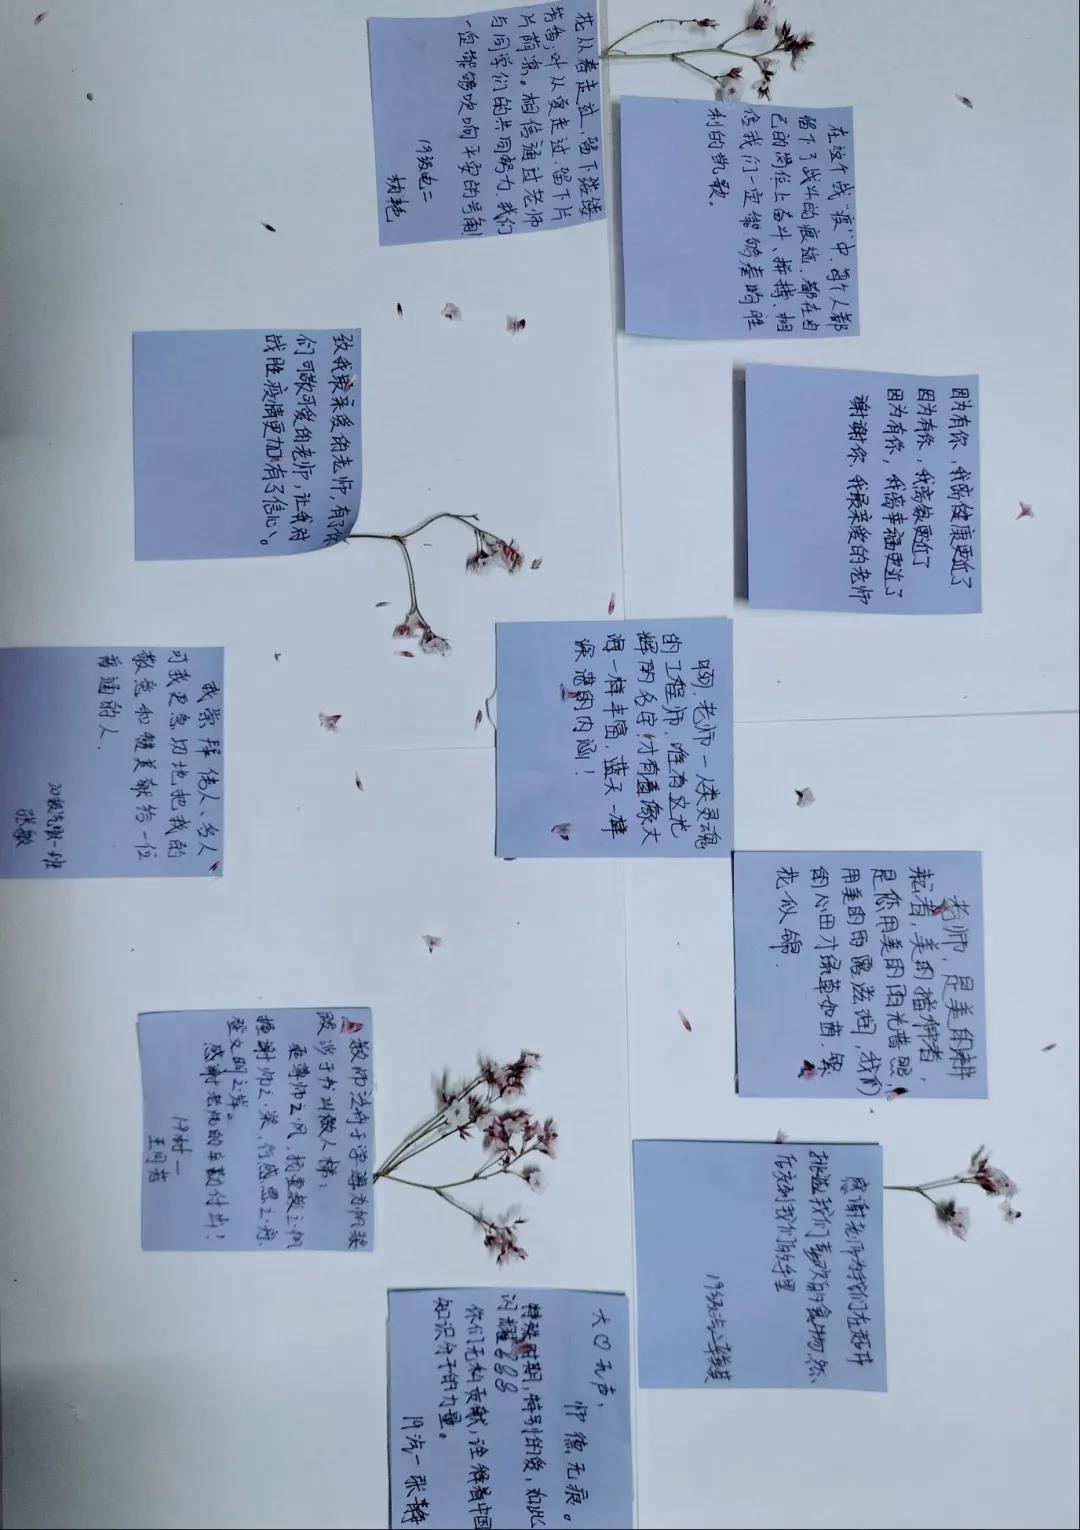 花从春走过,留下缕缕
芳香;叶从夏走过,留下片
片荫凉。相信通过老师
与同学们的共同努力,我们
一定能够吹响平安的号角!
19级电二
杨艳
在这个战“疫”中,每个人都
留下了战斗的痕迹,都在自
己的岗位上奋斗、拼搏,相
信我们一定能够奏响胜
利的凯歌。
致我最亲爱的老师,有了你
们可敬可爱的老师,让我对
战胜疫情更加有了信心。
因为有你,我离健康更近了
因为有你,我离家更近了
因为有你,我离幸福更近了
谢谢你,我最亲爱的老师
啊,老师—人类灵魂
的工程师,唯有这光
辉的名字,才有着像大
海一样丰富,蓝天一样
深湛的内涵!
我崇拜伟人、名人
可我更急切地把我的
敬意和赞美献给一位
普通的人.
20级汽服一班
张敏
老师,是美的耕
耘者,美的播种者,
是您用美的阳光普照,
用美的雨露滋润,我们
的心田才绿草如茵,繁
花似锦.
教师泛舟于学海为帆桨
跋涉于书山做人梯;
承尊师之风,扬重教之帆
操谢师之桨,行感恩之舟,
登文明之岸。
感谢老师的辛勤付出!
19财一
感谢老师为我们在超市
挑选我们喜欢的食物,然
后亲到我们的手里
大♡无声,
师德无痕。
特殊时期,特别的爱,如此
闪耀
你们无私贡献,诠释着中国
知识分子的力量。
19汽一 张静